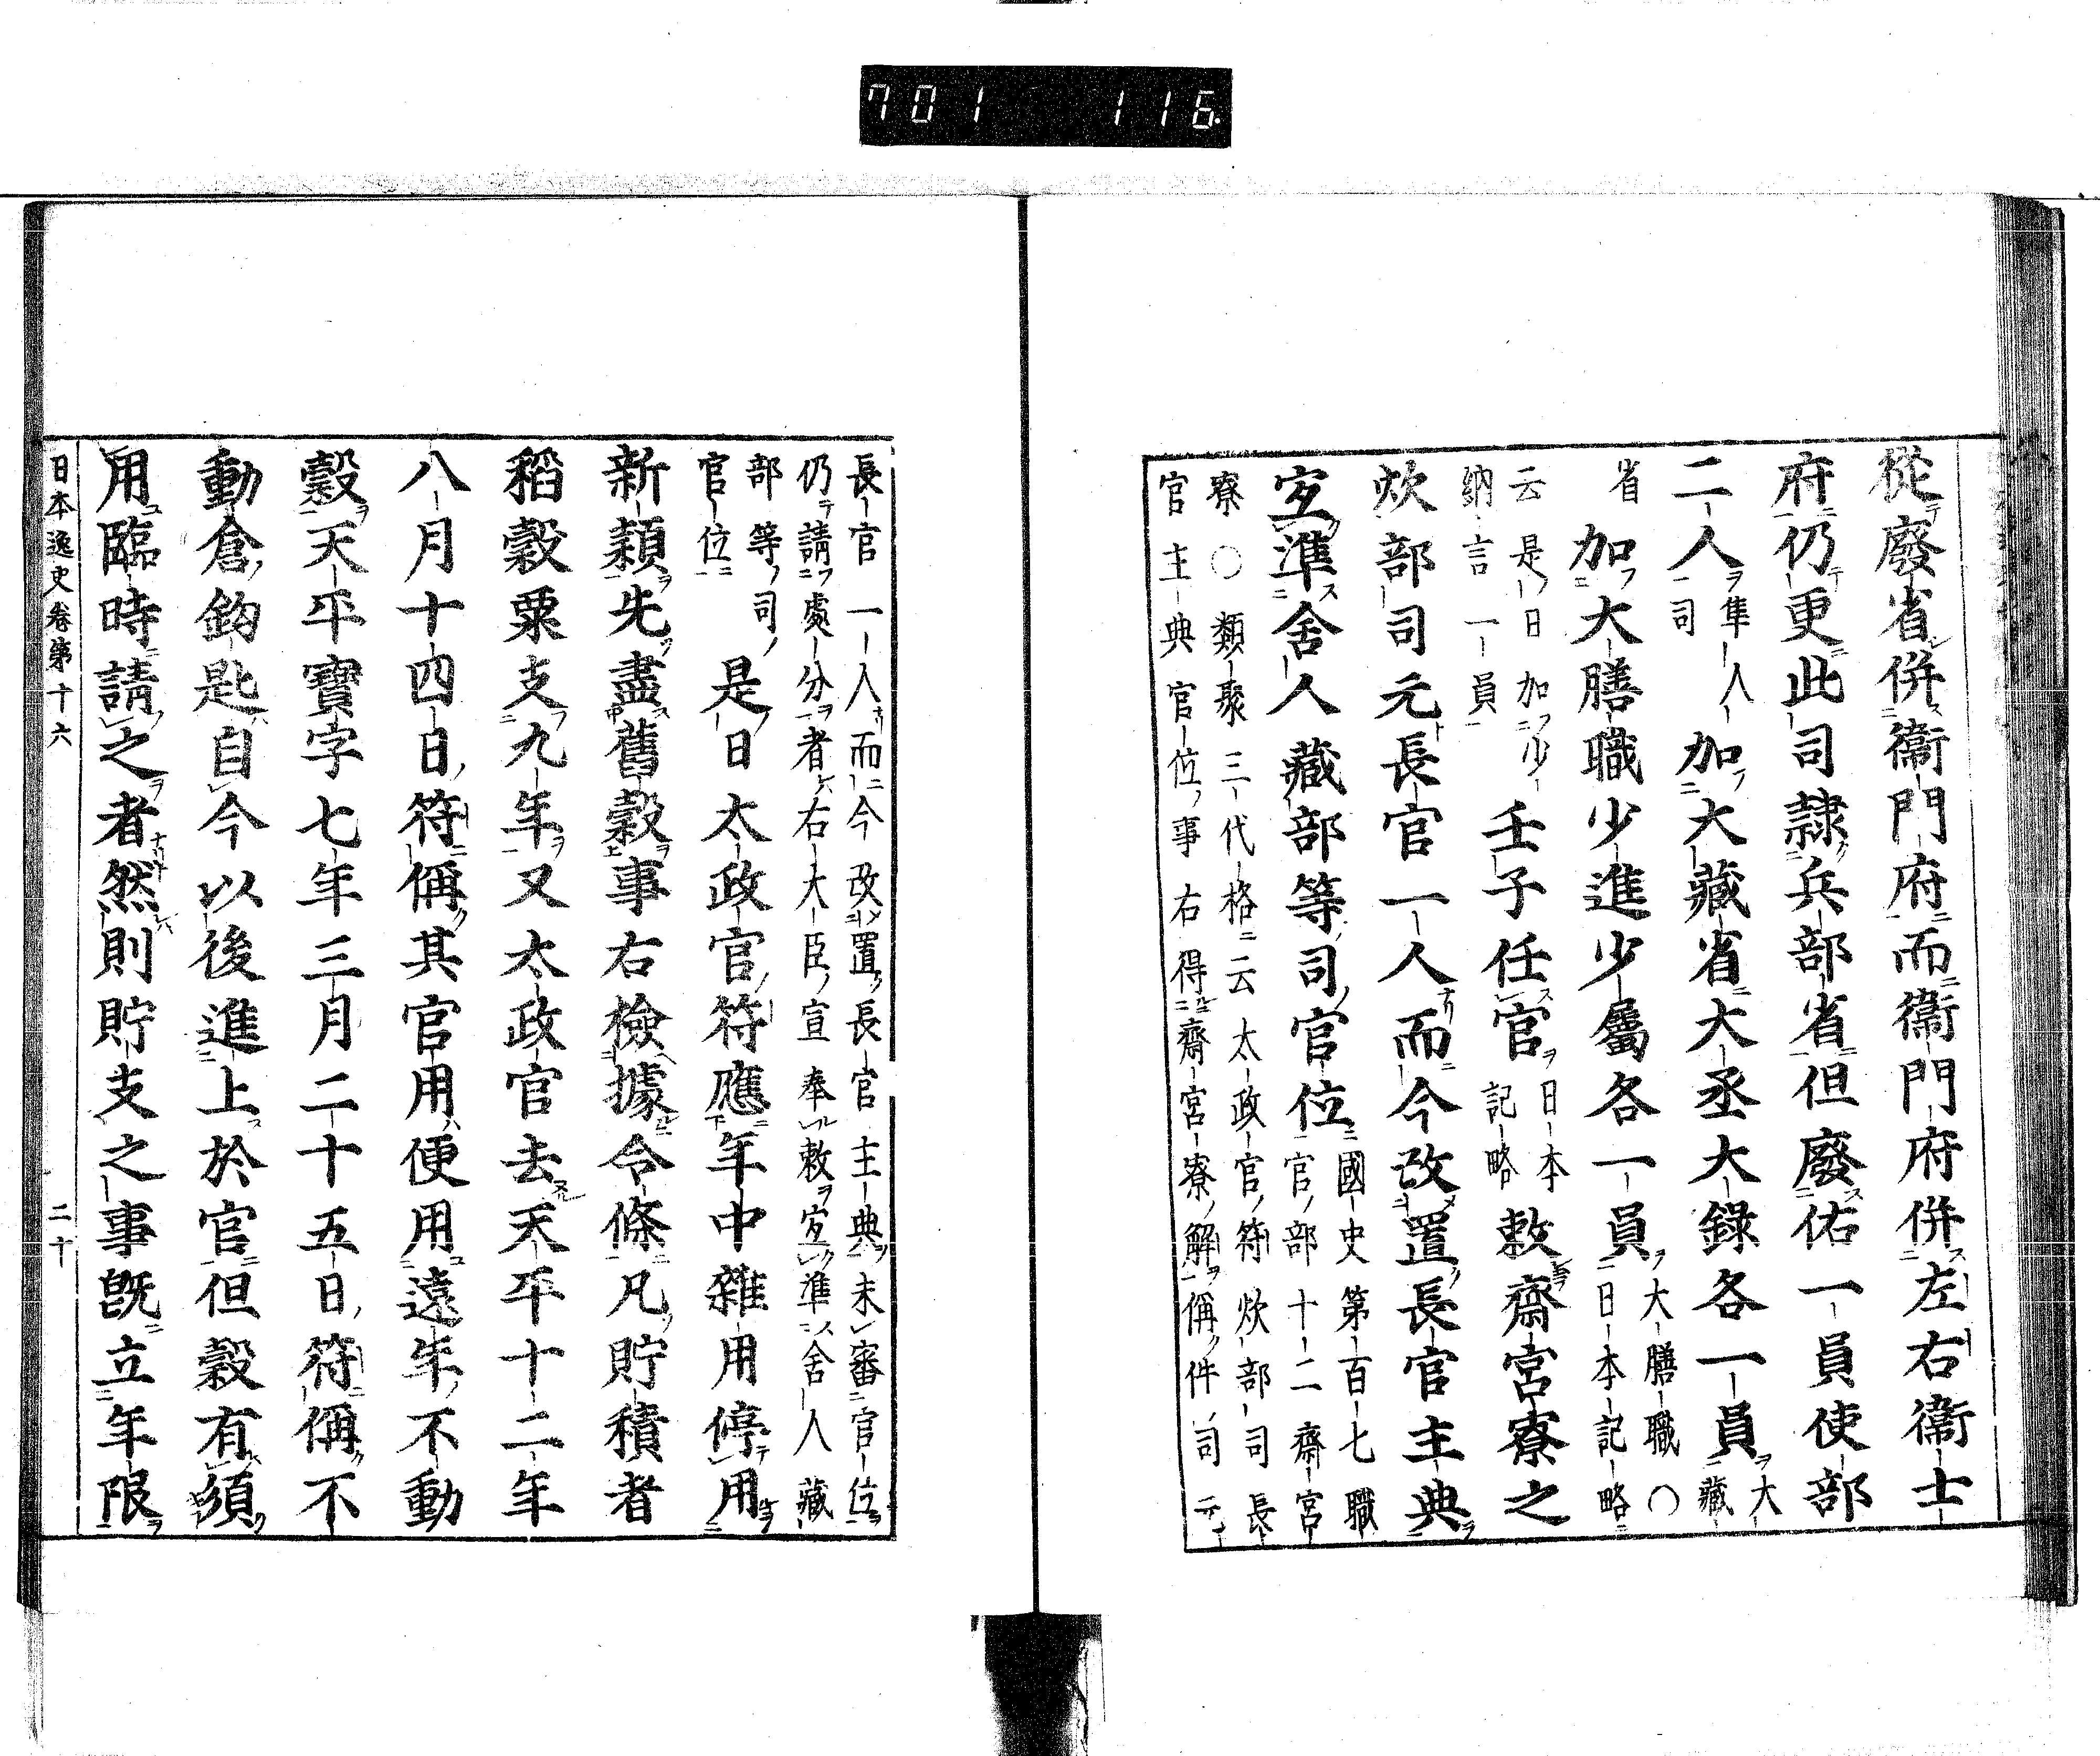 701 116
從廢省併衞門府而衞門府併左右衞士
府仍更此司隷兵部省但廢佑一員使部
二人隼人司加大藏省大丞大録各一員大藏
省加大膳職少進少屬各一員大膳職○日本記略
云是日加少納言一員壬子任官日本記略敕齋宮寮之
炊部司元長官一人而今改置長官主典
宐準舍人藏部等司官位國史第百七職官部十二齋宮
寮○類聚三代格云太政官符炊部司長
官主典官位事右得齋宮寮解稱件司元
長官一人而今改置長官主典未審官位
仍請處分者右大臣宣奉敕宐準舍人藏
部等司官位是日太政官符應年中雜用停用
新穎先盡舊穀事右檢據令條凡貯積者
稻穀粟支九年又太政官去天平十二年
八月十四日符稱其官用便用遠年不動
穀天平寶字七年三月二十五日符稱不
動倉鈎匙自今以後進上於官但穀有須
用臨時請之者然則貯支之事既立年限
日本逸史卷第十六 二十